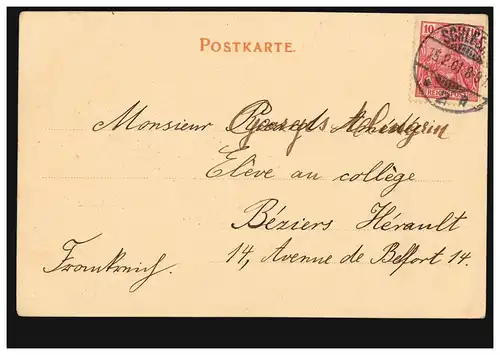 POSTKARTE.
10
REICHSPOST
15.2.01. 8-9
Monsieur
Elève au collège
Béziers Hérault
14, Avenue de Belfort 14.
Frankreich.